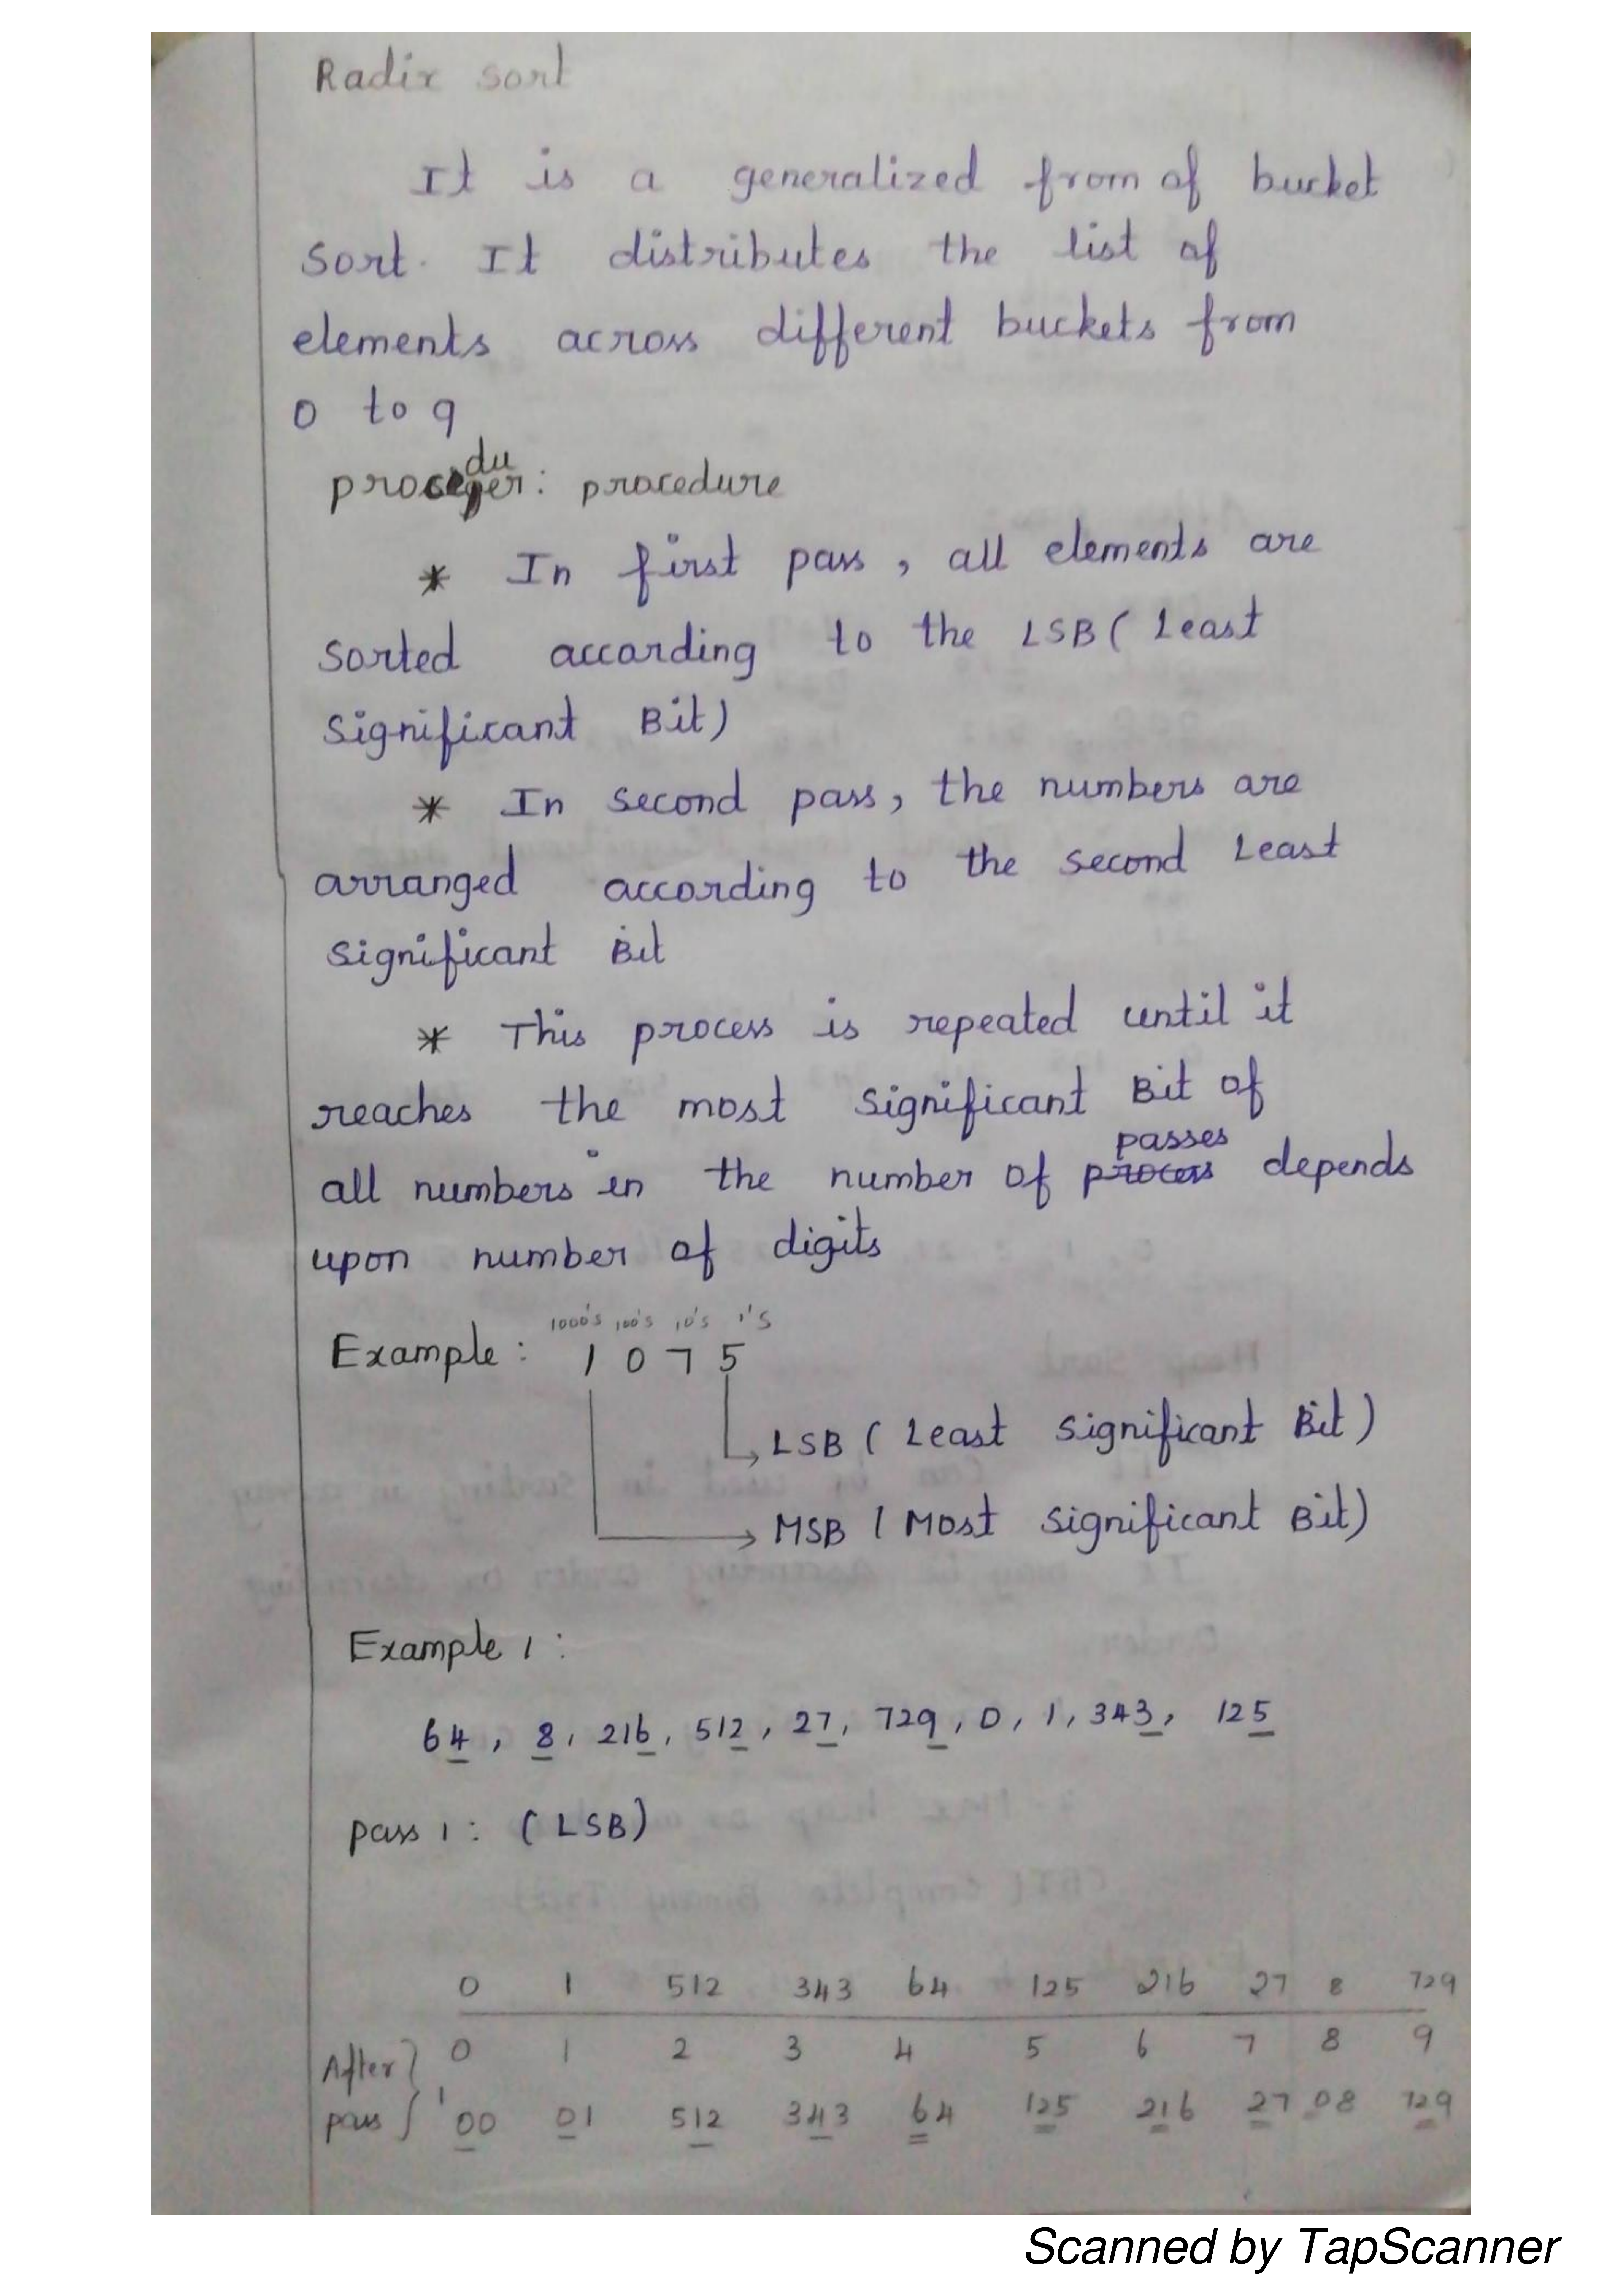 Radix sort
It is a generalized from of bucket
sort. It distributes the list of
elements across different buckets from
0 to 9
du
proceger: procedure
* In first pass, all elements are
sorted according to the LSB ( Least
Significant Bit)
* In second pass, the numbers are
arranged according to the second Least
Significant Bit
* This process is repeated until it
reaches the most significant Bit of
passes
all numbers in the number of process depends
upon number of digits
1000's 100's 10's 1's
Example : 1 0 7 5
LSB ( Least Significant Bit )
MSB ( Most Significant Bit)
Example 1 :
64 , 8, 216, 512, 27, 729, 0, 1, 343, 125
pass 1 : ( LSB)
0 1 512 343 64 125 216 27 8 729
0 1 2 3 4 5 6 7 8 9
After
pass 1 00 01 512 343 64 125 216 27 08 729
Scanned by TapScanner